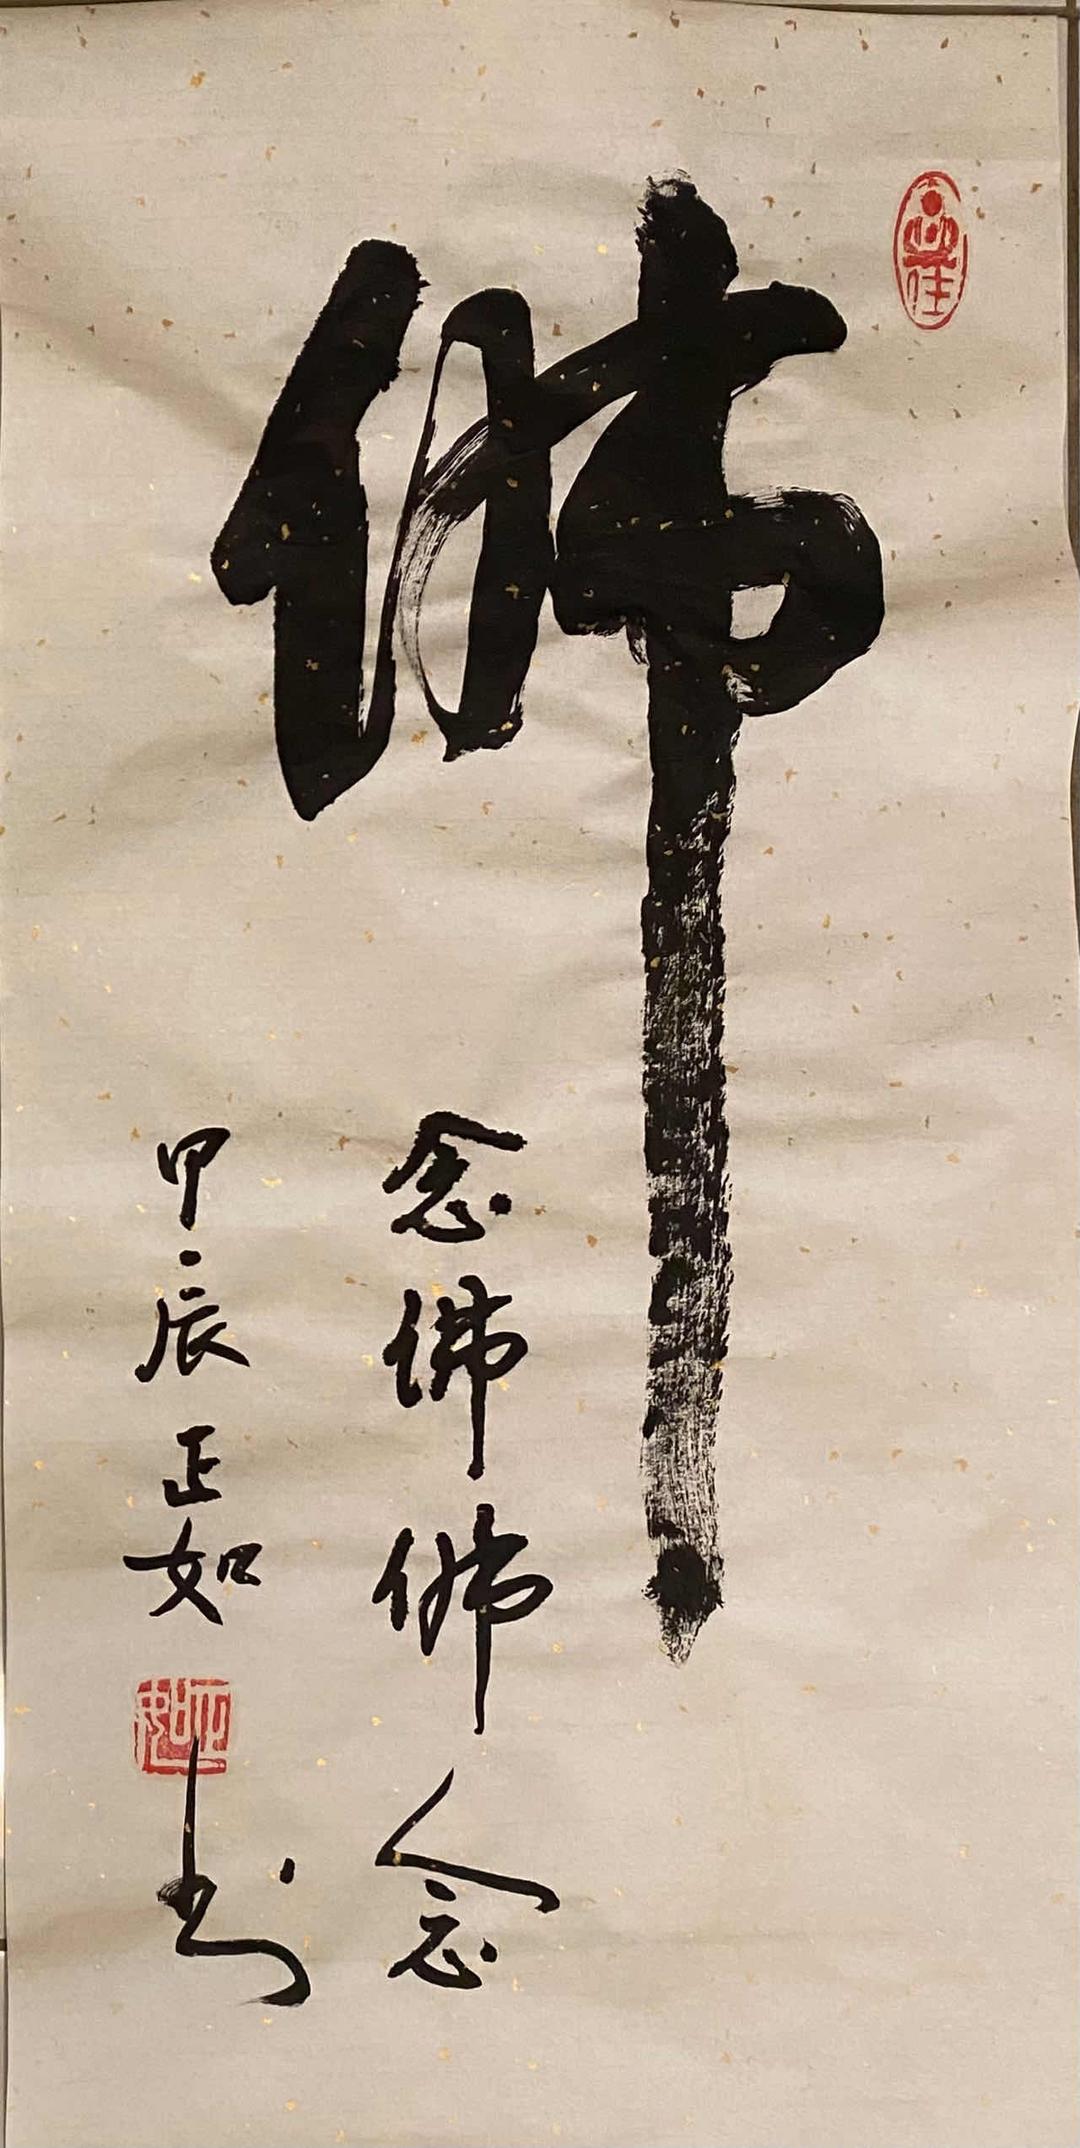 佛
念佛佛念
甲辰正如书